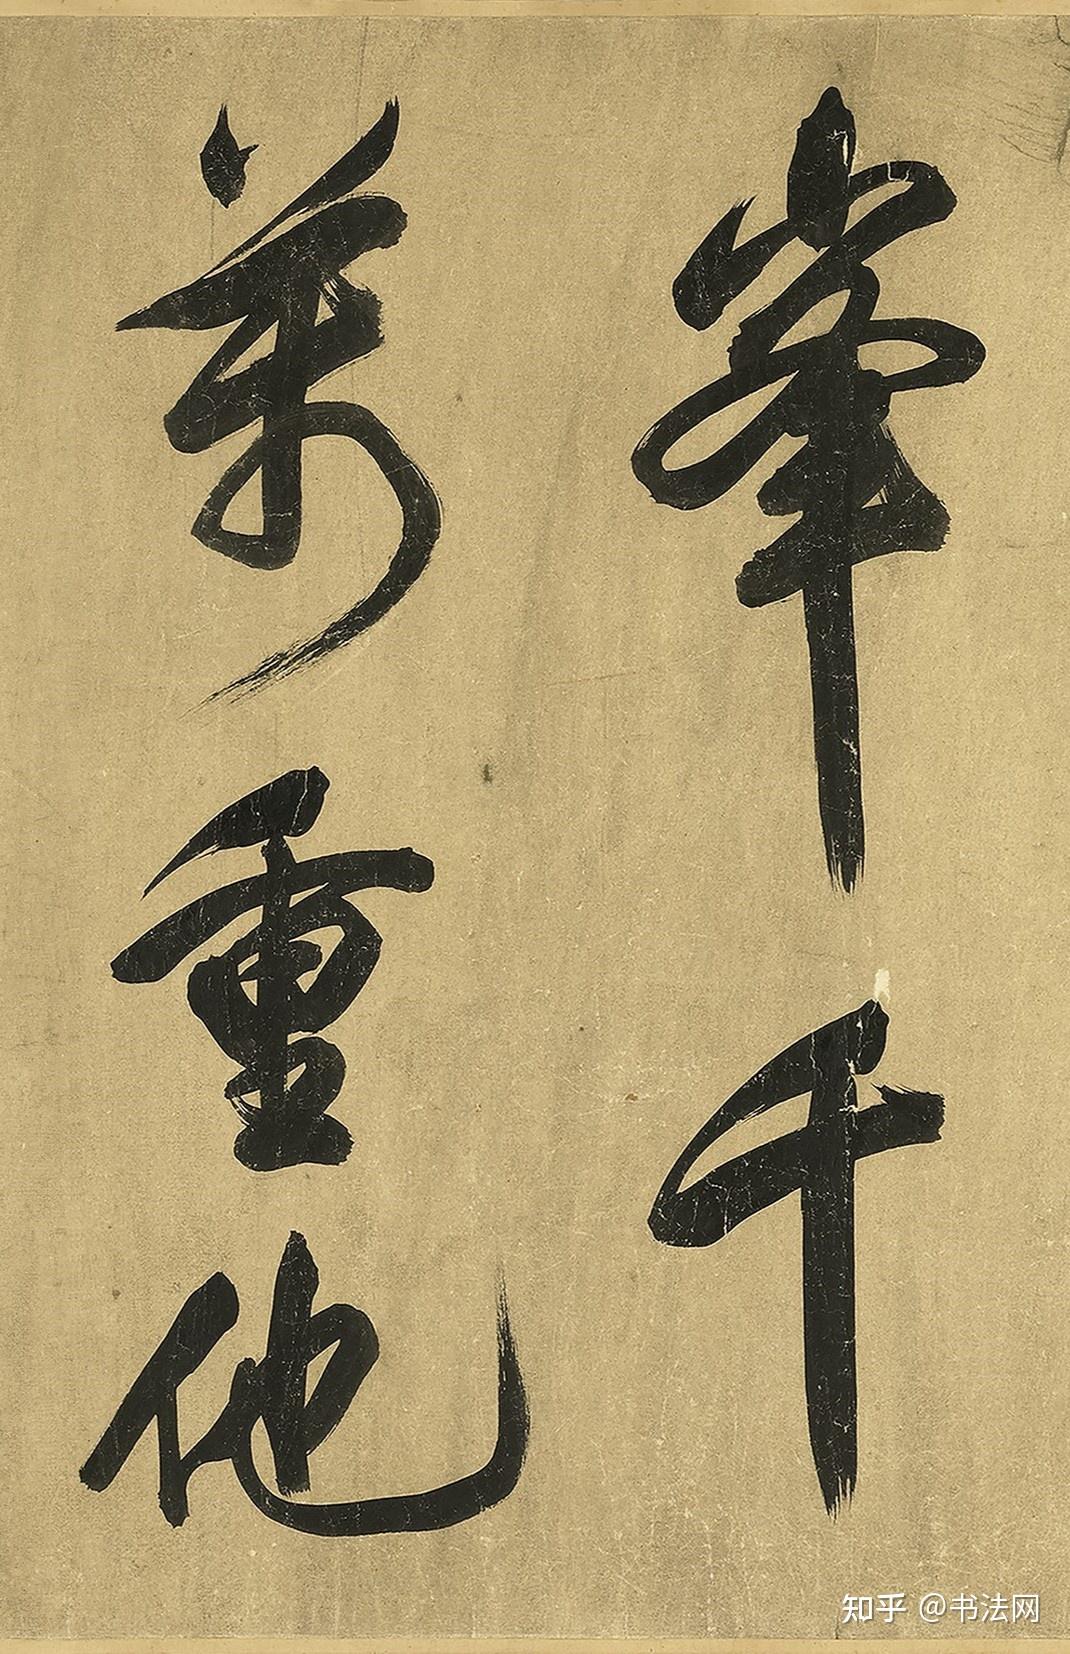 峯千
萬重他
知乎 @书法网